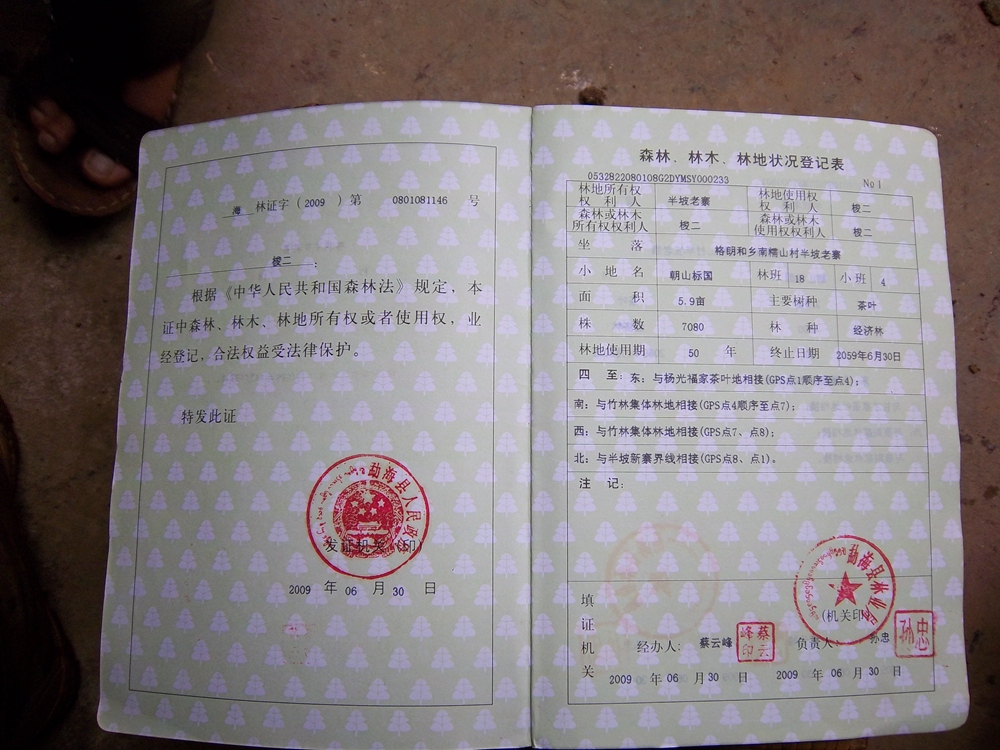 海 林证字（2009 ）第 0801081146 号
梭二 ：
根据《中华人民共和国森林法》规定，本
证中森林、林木、林地所有权或者使用权，业
经登记，合法权益受法律保护。
特发此证
勐海县人民政
发证机关（印）
2009 年 06 月 30 日
森林、林木、林地状况登记表
0532822080108G2DYMSY000233 No1
林地所有权权利人 半坡老寨 林地使用权权利人 梭二
森林或林木所有权权利人 梭二 森林或林木使用权权利人 梭二
坐落 格朗和乡南糯山村半坡老寨
小地名 朝山标国 林班 18 小班 4
面积 5.9亩 主要树种 茶叶
株数 7080 林种 经济林
林地使用期 50 年 终止日期 2059年6月30日
四至：东：与杨光福家茶叶地相接(GPS点1顺序至点4)；
南：与竹林集体林地相接(GPS点4顺序至点7)；
西：与竹林集体林地相接(GPS点7、点8)；
北：与半坡新寨界线相接(GPS点8、点1)。
注记：
勐海县林业
(机关印)
填证机关
经办人：蔡云峰 蔡云峰印 负责人 孙忠 孙忠
2009 年 06 月 30 日 2009 年 06 月 30 日